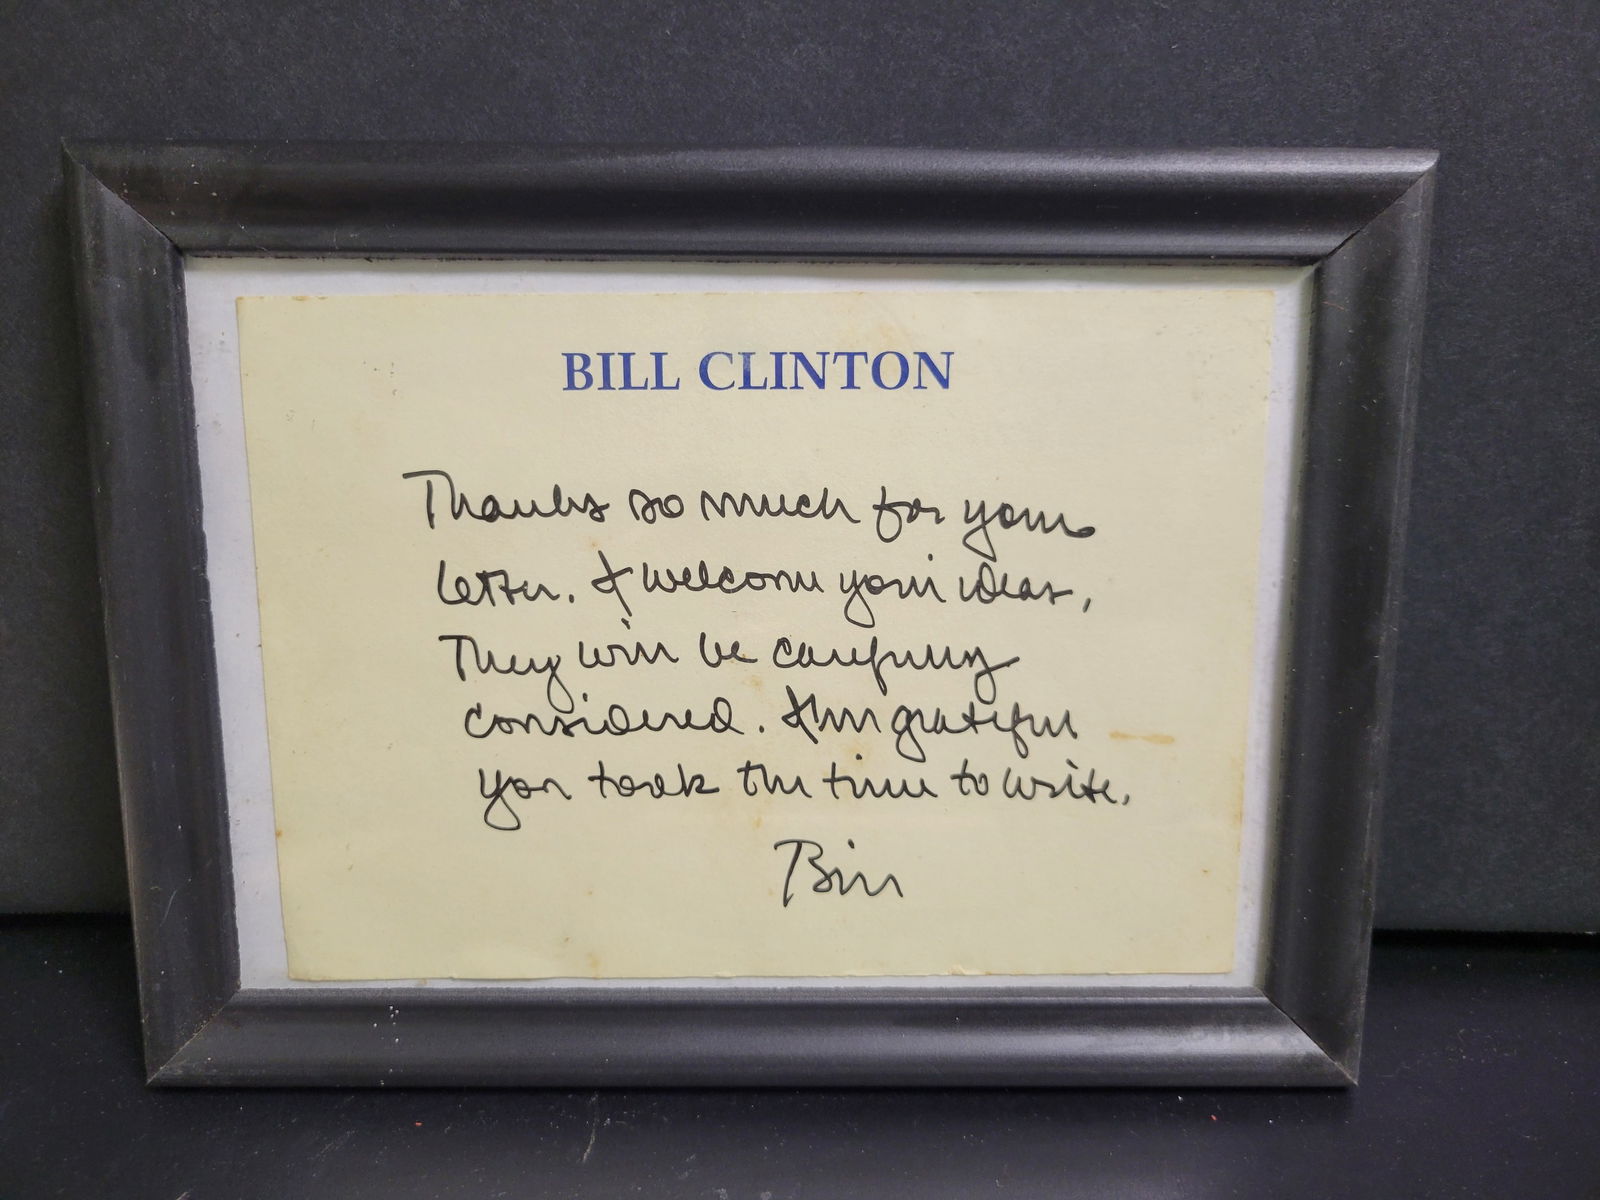 BILL CLINTON
Thanks so much for your
letter. I welcome your ideas.
They will be carefully
considered. I'm grateful
you took the time to write.
Bill